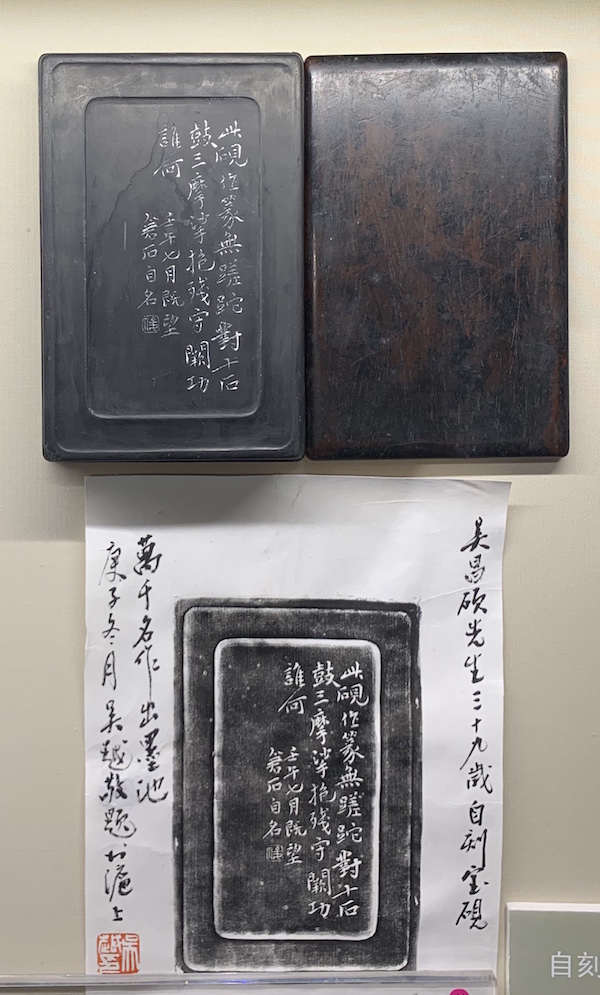 此硯作篆無蹉跎對十石
鼓三摩挲抱殘守闕功
誰何
壬午七月既望
倉石自名
吴昌硕先生三十九歲自刻宝硯
此硯作篆無蹉跎對十石
鼓三摩挲抱殘守闕功
誰何
壬午七月既望
倉石自名
萬千名作出墨池
庚子冬月吴越敬题於滬上
自刻